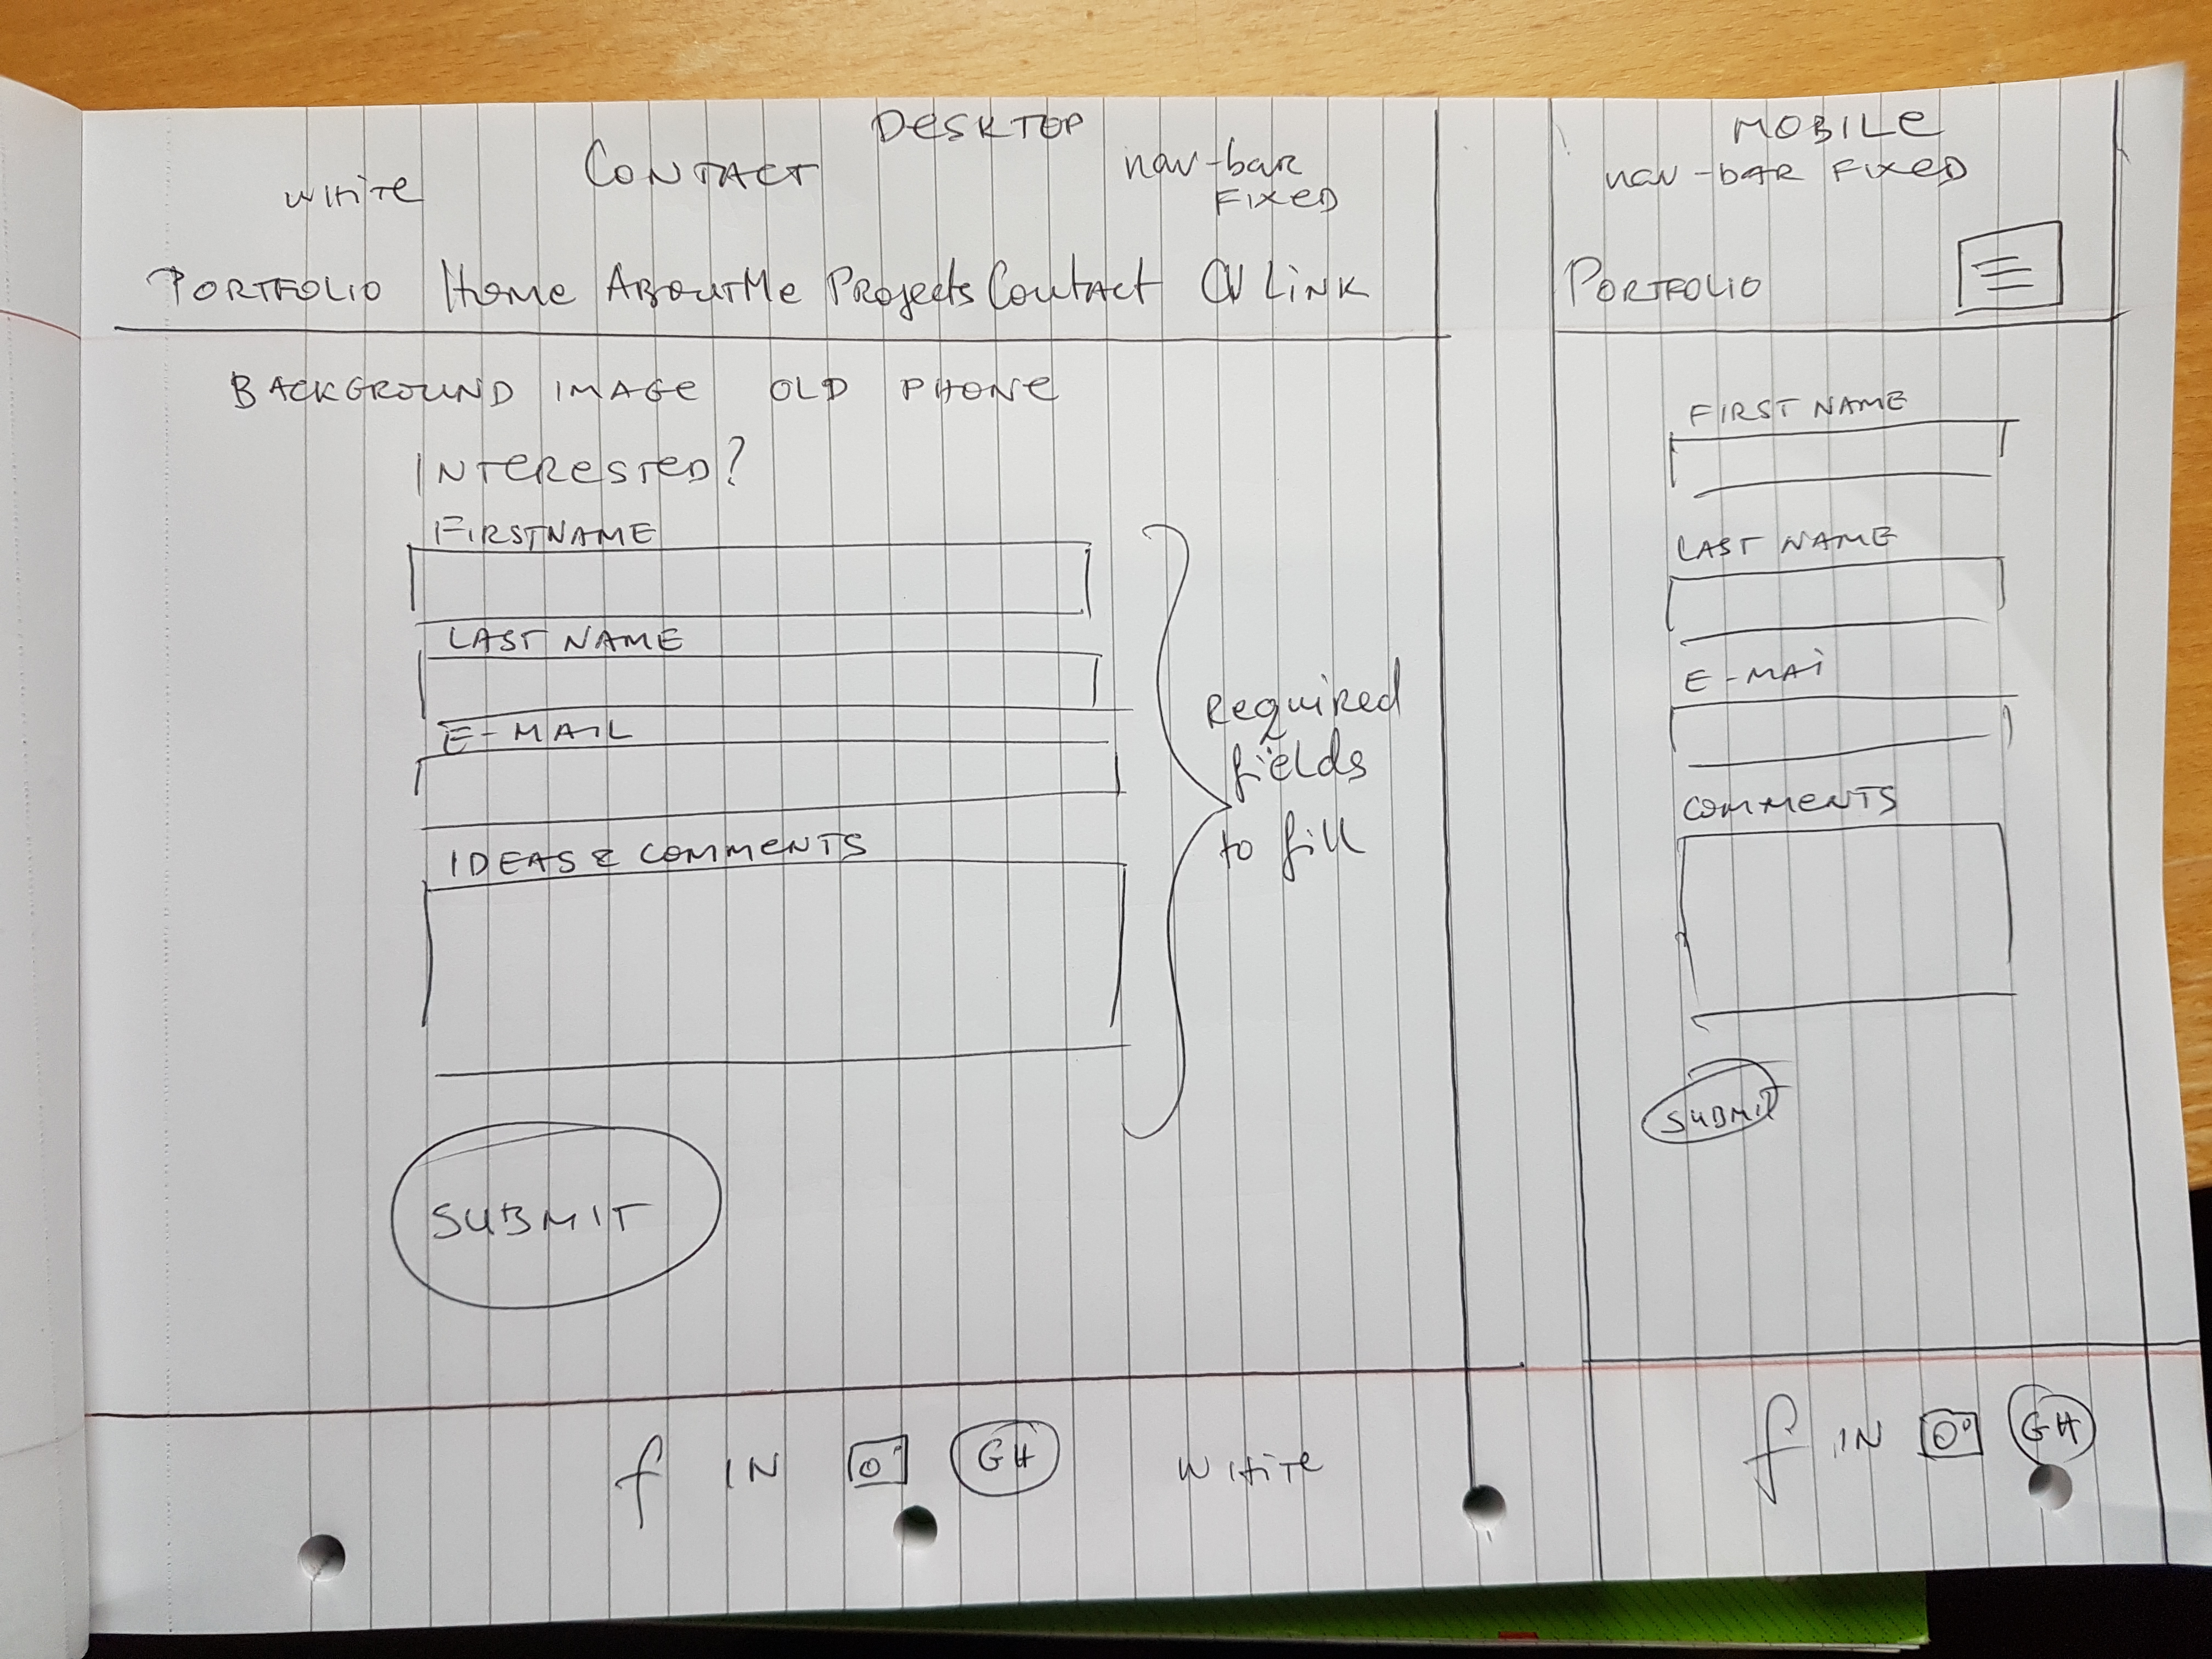 DESKTOP
CONTACT
WHITE
nav-bar
FIXED
PORTFOLIO Home AboutMe Projects Contact CV LINK
BACKGROUND IMAGE OLD PHONE
INTERESTED?
FIRSTNAME
LAST NAME
E-MAIL
IDEAS & COMMENTS
Required
fields
to fill
SUBMIT
f IN GH WHITE
MOBILE
nav-bar FIXED
PORTFOLIO
FIRST NAME
LAST NAME
E-MAi
COMMENTS
SUBMIT
f IN GH